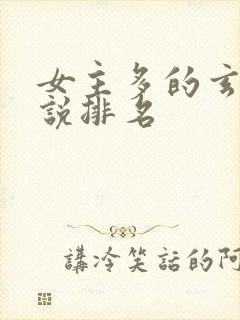 女主多的玄
說排名
講冷笑話的阿